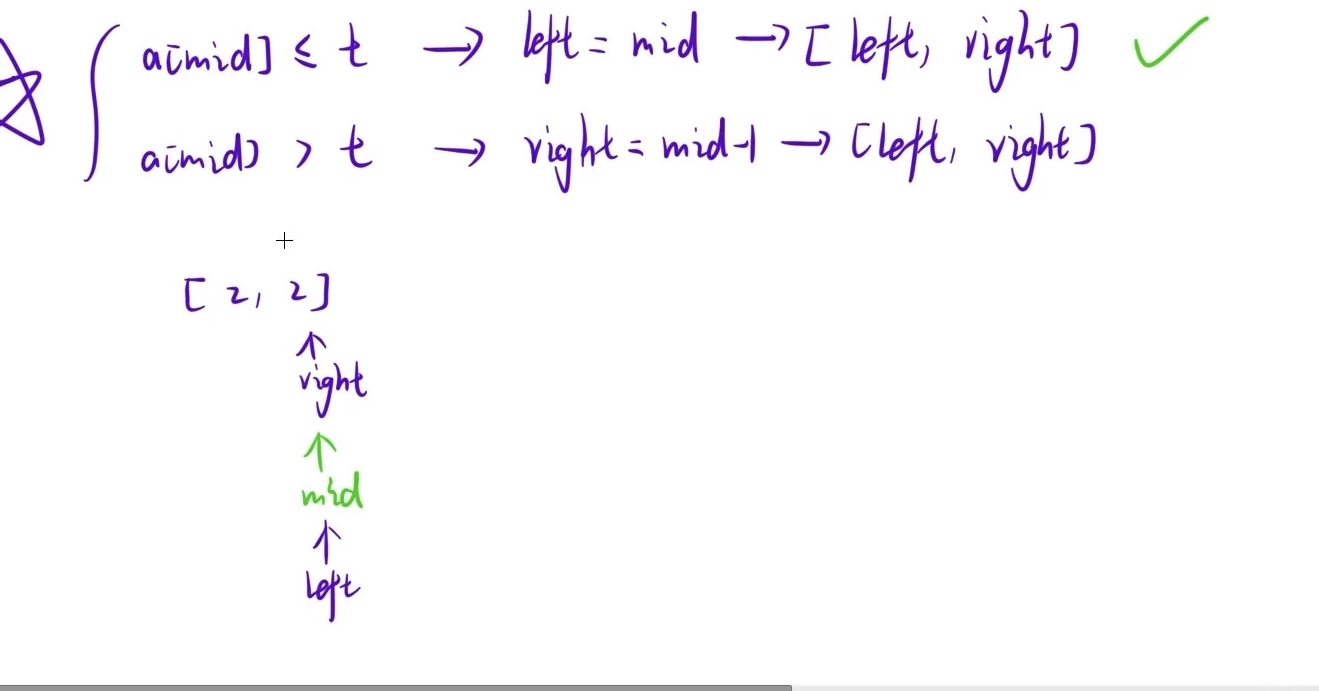 a[mid] ≤ t → left = mid → [left, right] ✓
a[mid] > t → right = mid-1 → [left, right]
[2, 2]
↑
right
↑
mid
↑
left